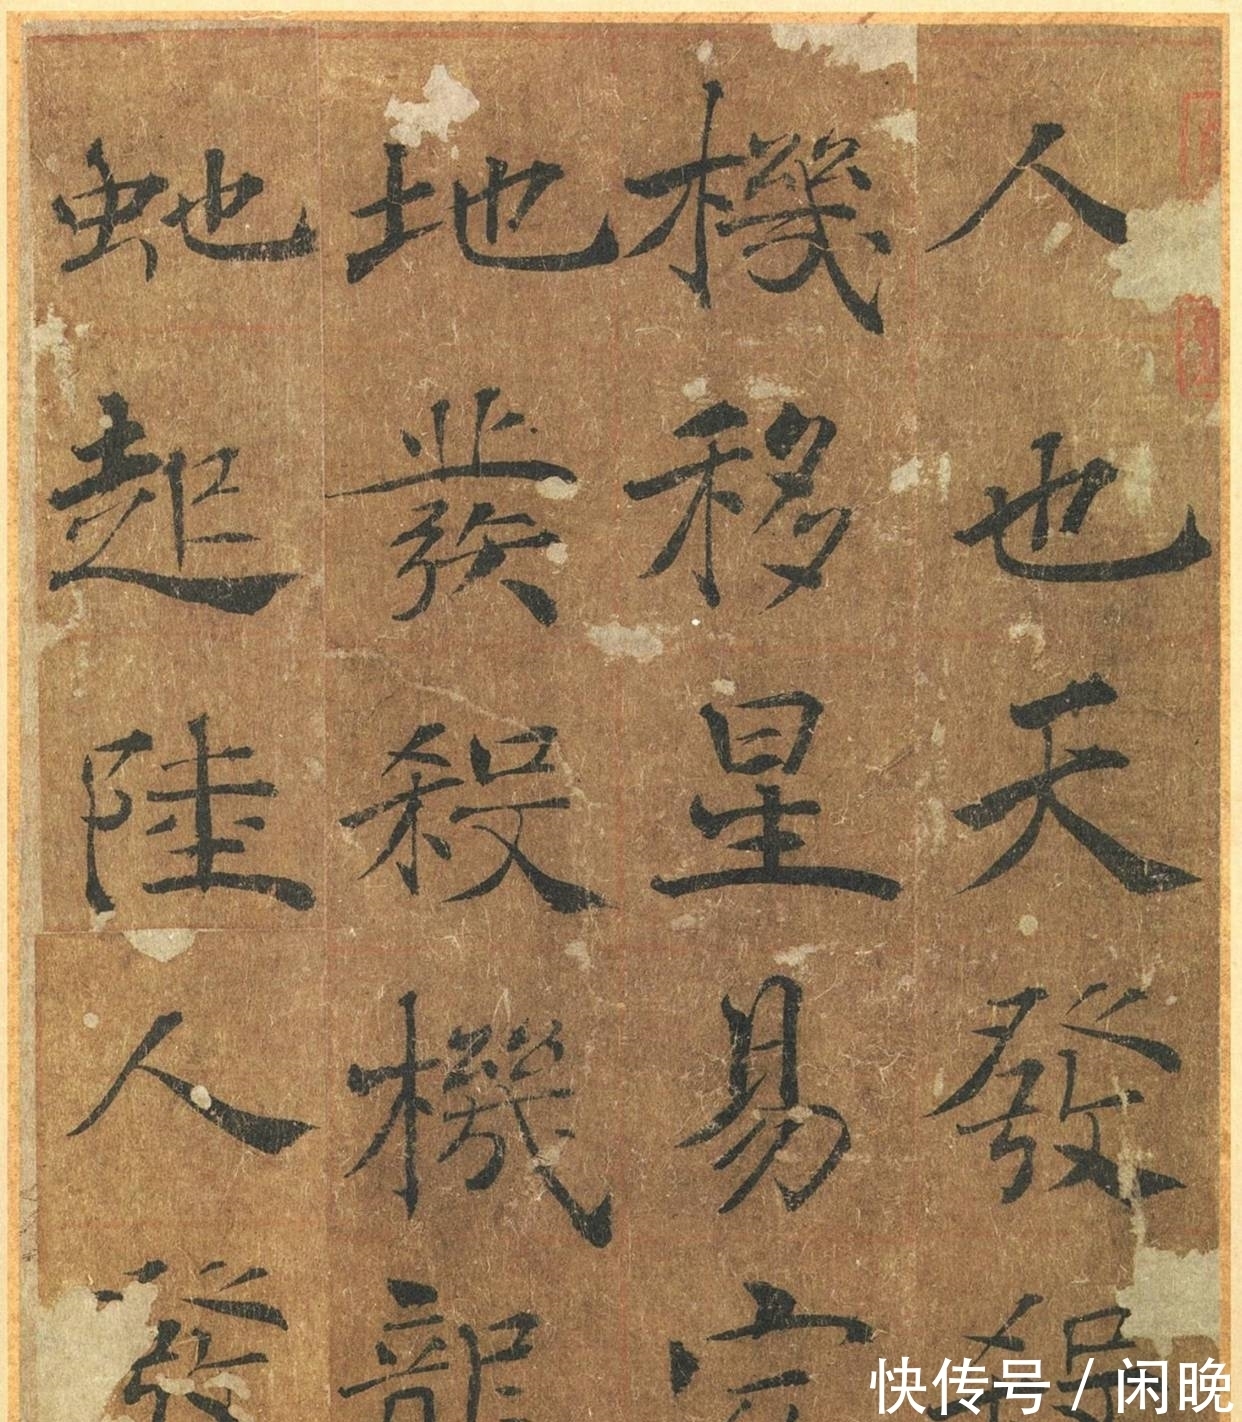 人也天發殺
機移星易宿
地發殺機龍
虵起陸人發
快传号 / 闲晚